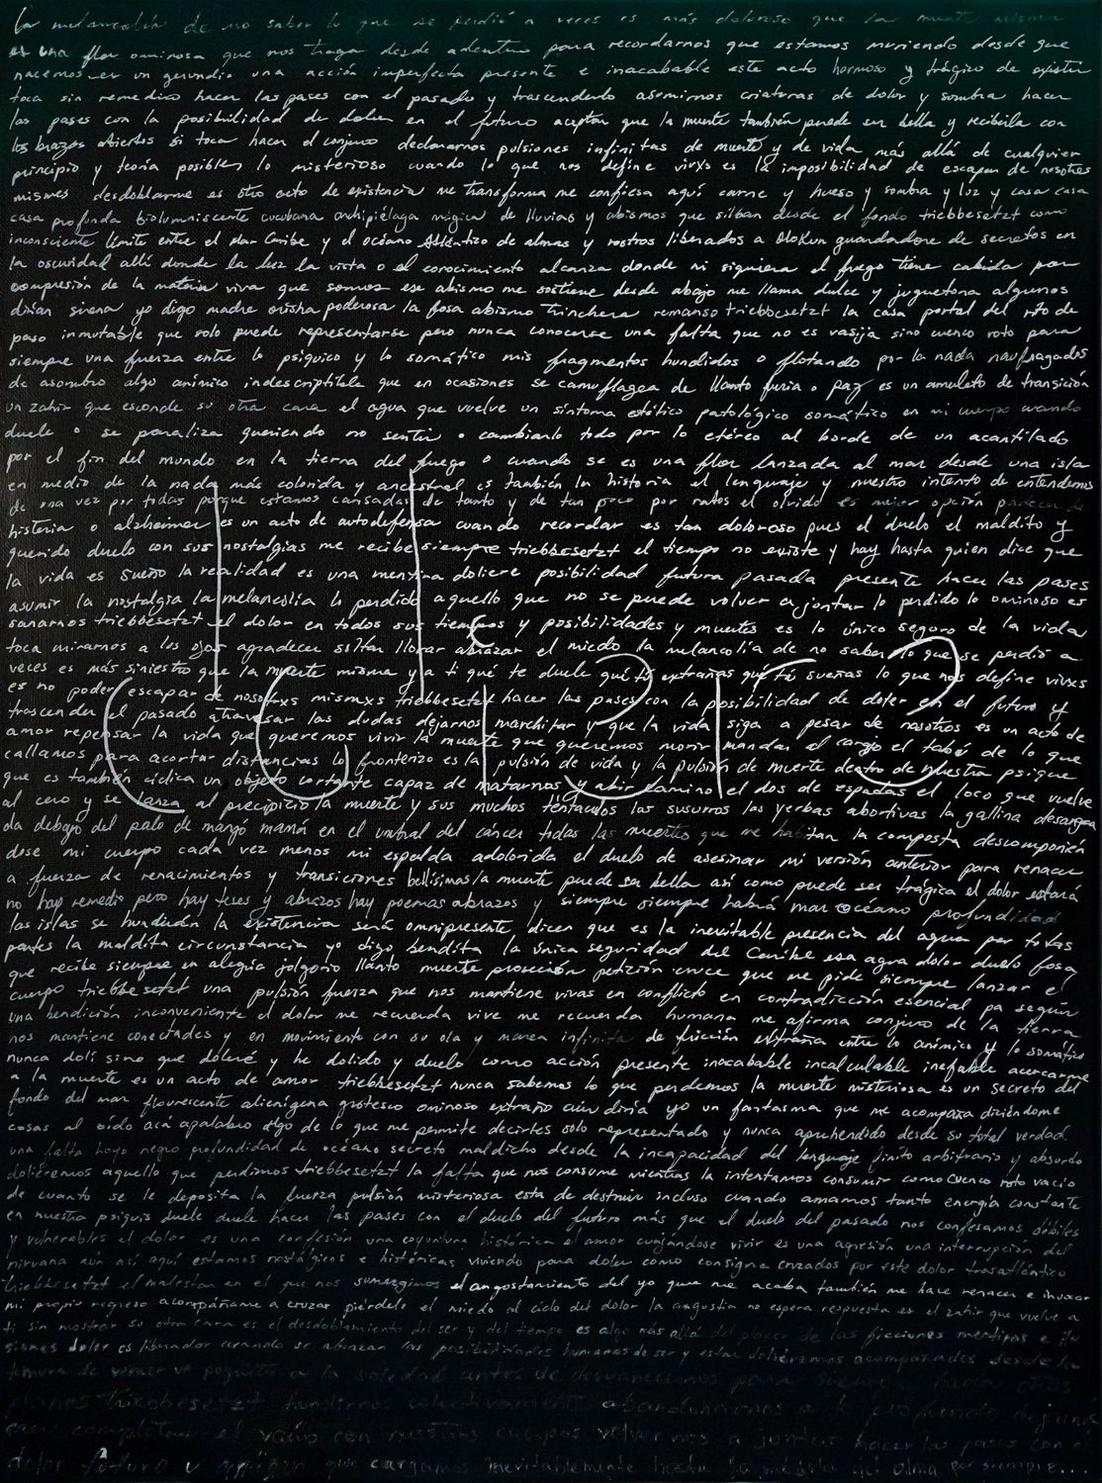 La melancolía de no saber lo que se perdió a veces es más doloroso que la muerte misma
es una flor ominosa que nos traga desde adentro para recordarnos que estamos muriendo desde que
nacemos es un gerundio una acción imperfecta presente e inacabable este acto hermoso y trágico de existir
toca sin remedio hacer las paces con el pasado y trascenderlo asumirnos criaturas de dolor y sombra hacer
las pases con la posibilidad de doler en el futuro aceptar que la muerte también puede ser bella y recibirla con
los brazos abiertos si toca hacer el conjuro declararnos pulsiones infinitas de muerte y de vida más allá de cualquier
principio y teoría posibles lo misterioso cuando lo que nos define vivxs es la imposibilidad de escapar de nosotres
mismes desdoblarme es otro acto de existencia me transforma me confiesa aquí carne y hueso y sombra y luz y casa casa
casa profunda bioluminiscente cucubana archipiélaga mágica de lluvias y abismos que silban desde el fondo triebbesetzt como
inconsciente límite entre el Mar Caribe y el océano Atlántico de almas y rostros liberados a Olokun guardadore de secretos en
la oscuridad allí donde la luz la vista o el conocimiento alcanza donde ni siquiera el fuego tiene cabida por
compresión de la materia viva que somos ese abismo me sostiene desde abajo me llama dulce y juguetona algunos
dirían sirena yo digo madre orisha poderosa la fosa abismo trinchera remanso triebbesetzt la casa portal del roto de
paso inmutable que solo puede representarse pero nunca conocerse una falta que no es vasija sino cuenco roto para
siempre una fuerza entre lo psíquico y lo somático mis fragmentos hundidos o flotando por la nada naufragados
de asombro algo anímico indescriptible que en ocasiones se camuflagea de llanto furia o paz es un amuleto de transición
un zahir que esconde su otra cara el agua que vuelve un síntoma estético patológico somático en mi cuerpo cuando
duele o se paraliza queriendo no sentir o cambiarlo todo por lo etéreo al borde de un acantilado
por el fin del mundo en la tierra del fuego o cuando se es una flor lanzada al mar desde una isla
en medio de la nada más colorida y ancestral es también la historia el lenguaje y nuestro intento de entendernos
de una vez por todas porque estamos cansadas de tanto y de tan poco por ratos el olvido es mejor opción padecer de
histeria o alzheimer es un acto de autodefensa cuando recordar es tan doloroso pues el duelo el maldito y
querido duelo con sus nostalgias me recibe siempre triebbesetzt el tiempo no existe y hay hasta quien dice que
la vida es sueño la realidad es una mentira doliere posibilidad futura pasada presente hacer las pases
asumir la nostalgia la melancolía lo perdido aquello que no se puede volver a juntar lo perdido lo ominoso es
sanarnos triebbesetzt el dolor en todos sus tiempos y posibilidades y muertes es lo único seguro de la vida
toca mirarnos a los ojos agradecer soltar llorar abrazar el miedo la melancolía de no saber lo que se perdió a
veces es más siniestro que la muerte misma y a ti qué te duele qué te extrañas qué tú sueñas lo que nos define vivxs
es no poder escapar de nosotrxs mismxs triebbesetzt hacer las pases con la posibilidad de doler en el futuro y
trascender el pasado atravesar las dudas dejarnos marchitar y que la vida siga a pesar de nosotros es un acto de
amor repensar la vida que queremos vivir la muerte que queremos morir mandar al carajo el tabú de lo que
callamos para acortar distancias lo fronterizo es la pulsión de vida y la pulsión de muerte dentro de nuestra psique
que es también cíclica un objeto cortante capaz de matarnos y abrir camino el dos de espadas el loco que vuelve
al cero y se lanza al precipicio la muerte y sus muchos tentáculos los susuros las yerbas abortivas la gallina desangra
da debajo del palo de mangó mamá en el umbral del cáncer todas las muertes que me habitan la composta descomponién
dose mi cuerpo cada vez menos mi espalda adolorida el duelo de asesinar mi versión anterior para renacer
a fuerza de renacimientos y transiciones bellísimas la muerte puede ser bella así como puede ser trágica el dolor estará
no hay remedio pero hay teses y abrazos hay poemas abrazos y siempre siempre habrá mar océano profundidad
las islas se hundirán la existencia será omnipresente dicen que es la inevitable presencia del agua por todas
partes la maldita circunstancia yo digo bendita la única seguridad del Caribe esa agua dolor duelo fosa
que recibe siempre en alegría jolgorio llanto muerte procesión petición cruce que me pide siempre lanzar el
cuerpo triebbesetzt una pulsión fuerza que nos mantiene vivas en conflicto en contradicción esencial pa seguir
una bendición inconveniente el dolor me recuerda vive me recuerda humana me afirma conjuro de la tierra
nos mantiene conectades y en movimiento con su ola y marea infinita de fricción extraña entre lo anímico y lo somático
nunca dolí sino que doleré y he dolido y duelo como acción presente inacabable incalculable inefable acercarme
a la muerte es un acto de amor triebbesetzt nunca sabemos lo que perdemos la muerte misteriosa es un secreto del
fondo del mar flourescente alienígena grotesco ominoso extraño aún diría yo un fantasma que me acompaña diciéndome
cosas al oído acá apalabro algo de lo que me permite decirtes solo representado y nunca aprehendido desde su total verdad
una falta hoyo negro profundidad de océano secreto maldicho desde la incapacidad del lenguaje finito arbitrario y absurdo
doliéremos aquello que perdimos triebbesetzt la falta que nos consume mientras la intentamos consumir como cuenco roto vacío
de cuanto se le deposita la fuerza pulsión misteriosa esta de destruir incluso cuando amamos tanto energía constante
en nuestra psiquis duele duele hacer las pases con el duelo del futuro más que el duelo del pasado nos confesamos débiles
y vulnerables el dolor es una confesión una coyuntura histórica el amor cuajándose vivir es una agresión una interrupción del
nirvana aún así aquí estamos nostálgicos e histéricas viviendo para doler como consigna cruzados por este dolor trasatlántico
triebbesetzt el malestar en el que nos sumergimos el angostamiento del yo que me acaba también me hace renacer e invocar
mi propio regreso acompáñame a cruzar piérdele el miedo al ciclo del dolor la angustia no espera respuesta es el zahir que vuelve a
ti sin mostrar su otra cara es el desdoblamiento del ser y del tiempo es algo más allá del placer de las ficciones mentiras e ilu
siones doler es liberador cuando se abrazan las posibilidades humanas de ser y estar doliéremos acompañades desde la
a la soledad antes de desvanecernos para
triebbesetzt fundirnos colectivamente abandonarnos a lo profundo
el vacío con nuestros cuerpos volvernos a juntar hacer las pases con el
dolor futuro y que cargamos inevitablemente hasta la médula del alma por siempre...